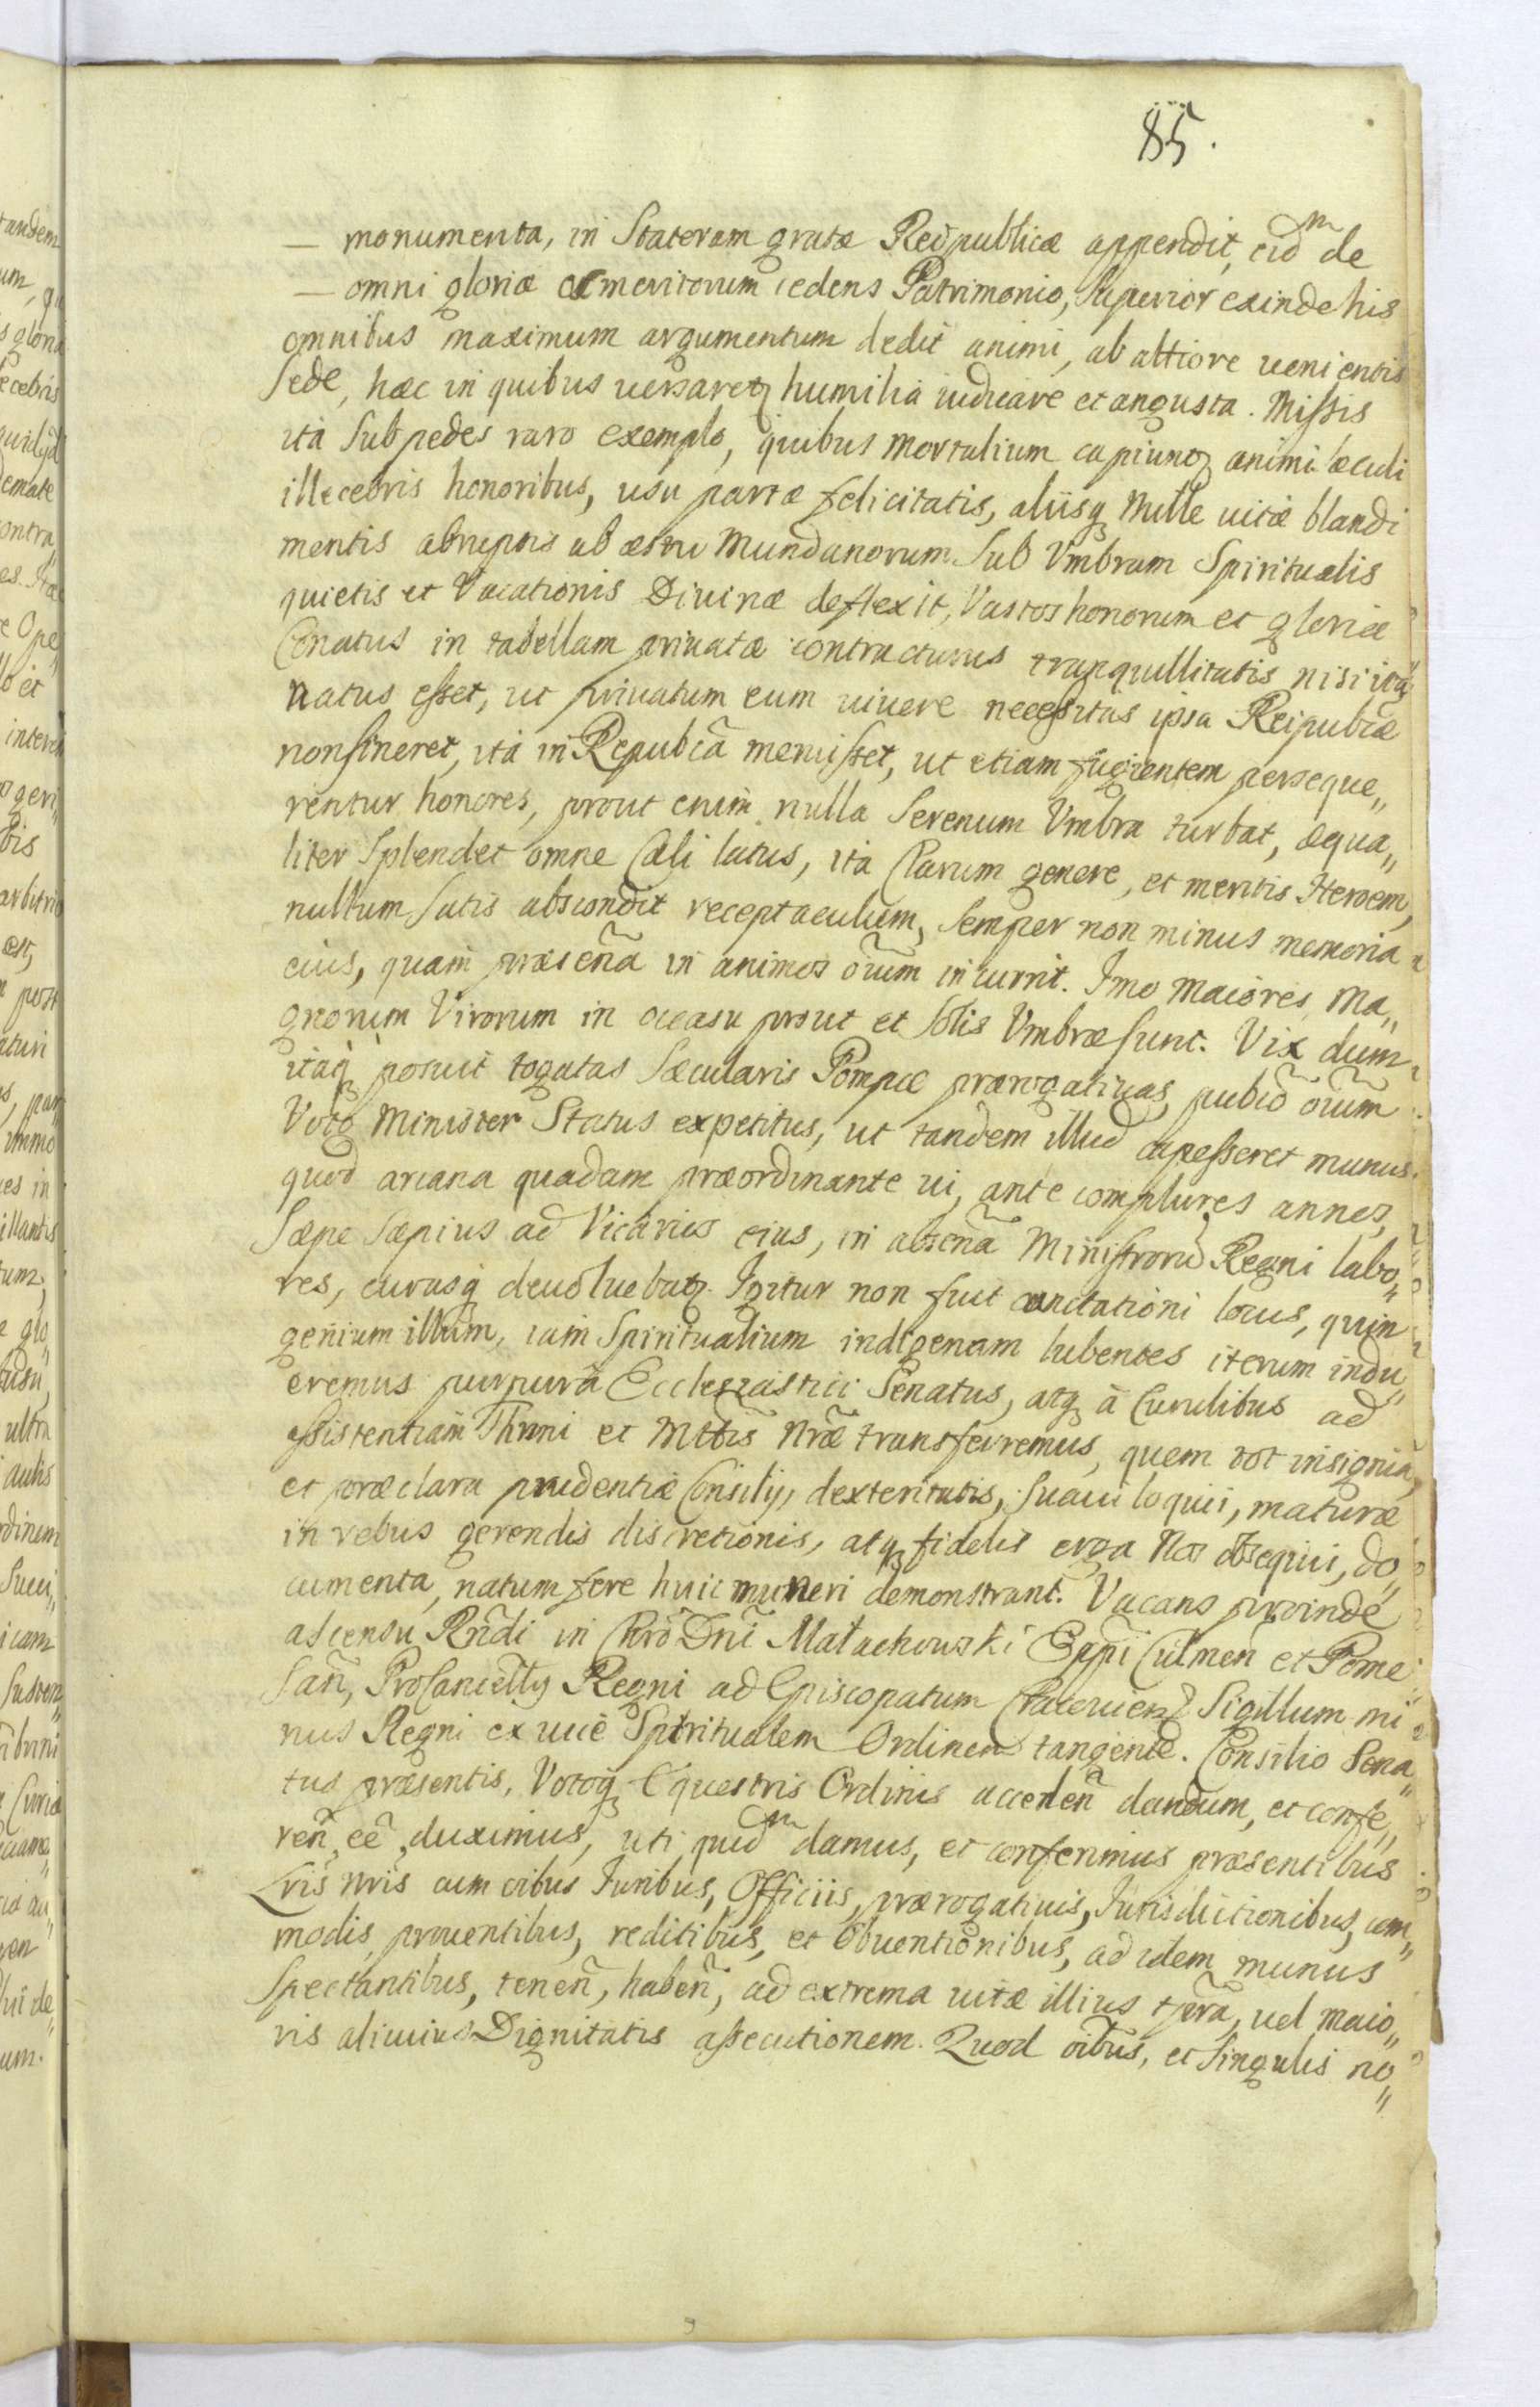 85.
— monumenta, in Stateram gratæ Reipublicæ appendit, eidm de
— omni gloriæ ac meritorum cedens Patrimonio, Superior exinde his
omnibus maximum argumentum dedit animi, ab altiore uenientis
Sede, hæc in quibus uersaretq humilia iudicare et angusta. Missis
ità Sub pedes raro exemplo, quibus mortalium capiunq animi oculi
illecebris honoribus, usu partæ felicitatis, aliisq Mille uitæ blandi
mentis abreptis ab æstu Mundanorum Sub Vmbram Spiritualis
quietis et Vacationis Diuinæ deflexit, Vastos honorum et gloriæ
Conatus in tabellam priuatæ contracturus tranquillitatis nisi ita
natus esset, ut priuatum eum uiuere necessitas ipsa Reipubcæ
non sineret, ità in Repubcã meruisset, ut etiam fugientem perseque„
rentur honores, prout enim nulla Serenum Vmbra turbat, æqua„
liter Splendet omne Cæli latus, ita Clarum genere, et meritis Heroem,
nullum Satis abscondit receptaculum, Semper non minus memoria
eius, quam præsenã in animos oium incurrit. Imo maiores Ma„
gnorum Virorum in occasu prout et Solis Vmbræ sunt. Vix dum
itaq posuit togatas Sæcularis Pompæ prærogatiuas, pubcõ oium
Voto Minister Status expetitus, ut tandem illud capesseret munus
quod arcana quadam præordinante ui, ante complures annos,
Sæpe Sæpius ad Vicarios eius, in absenã Ministrorũ Regni labo„
res, curasq deuoluebatq. Igitur non fuit cunctationi locus, quin
genium illum, iam Spiritualium indigenam lubentes iterum indu„
eremus purpurâ Ecclesiastici Senatus, atq à Curulibus ad
assistentiam Throni et Mttis Nræ transferremus, quem tot insignia,
et præclara prudentiæ Consilij, dexteritatis, Suauiloquii, maturæ
in rebus gerendis discretionis, atq fidelis erga Nos obsequii, do„
cumenta, natum fere huic muneri demonstrant. Vacans proinde
ascensu Rndi in Chrõ Dni Małachowski Eppi Culmeñ et Pome
sañ, ProCancellrij Regni ad Episcopatum Cracouien Sigillum mi
nus Regni ex uice Spiritualem Ordinem tangente. Consilio Sena„
tus præsentis, Votoq Equestris Ordinis accedenã dandum, et confe„
reñ eẽ duximus, uti quidm damus, et conferimus præsentibus
Lris Nris cum oibus Iuribus, Officiis, prærogatiuis, Iurisdictionibus, com„
modis, prouentibus, reditibus, et Obuentionibus, ad idem munus
Spectantibus, teneñ, habeñ, ad extrema uitæ illius tpera, uel maio„
ris alicuius Dignitatis assecutionem. Quod oibus, et Singulis no„